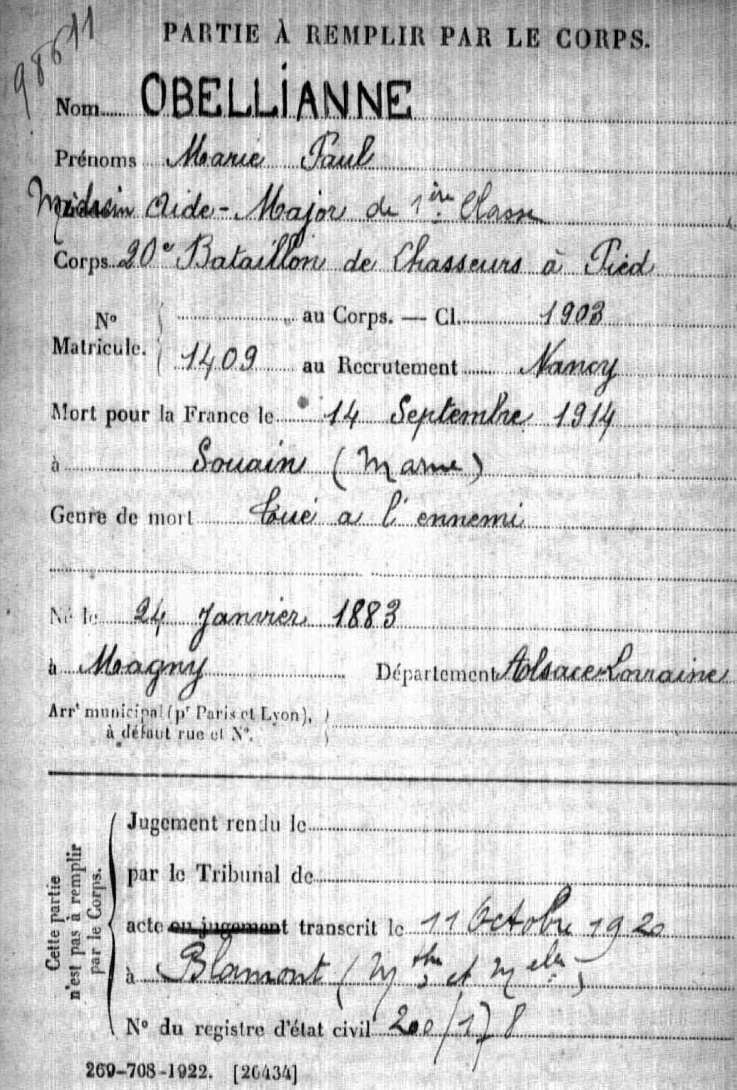 98611
PARTIE À REMPLIR PAR LE CORPS.
Nom OBELLIANNE
Prénoms Marie Paul
Médecin Aide-Major de 1ière Classe
Corps 20e Bataillon de Chasseurs à Pied
N° Matricule. { au Corps. — Cl. 1903
1409 au Recrutement Nancy
Mort pour la France le 14 Septembre 1914
à Souain (Marne)
Genre de mort tué a l'ennemi
Né le 24 Janvier 1883
à Magny Département Alsace-Lorraine
Arrt municipal (pr Paris et Lyon), }
à défaut rue et N°.
Cette partie n'est pas à remplir par le Corps.
Jugement rendu le
par le Tribunal de
acte ou jugement transcrit le 11 Octobre 1920
à Blamont (Mthe et Melle)
N° du registre d'état civil 200/178
269-708-1922. [26434]